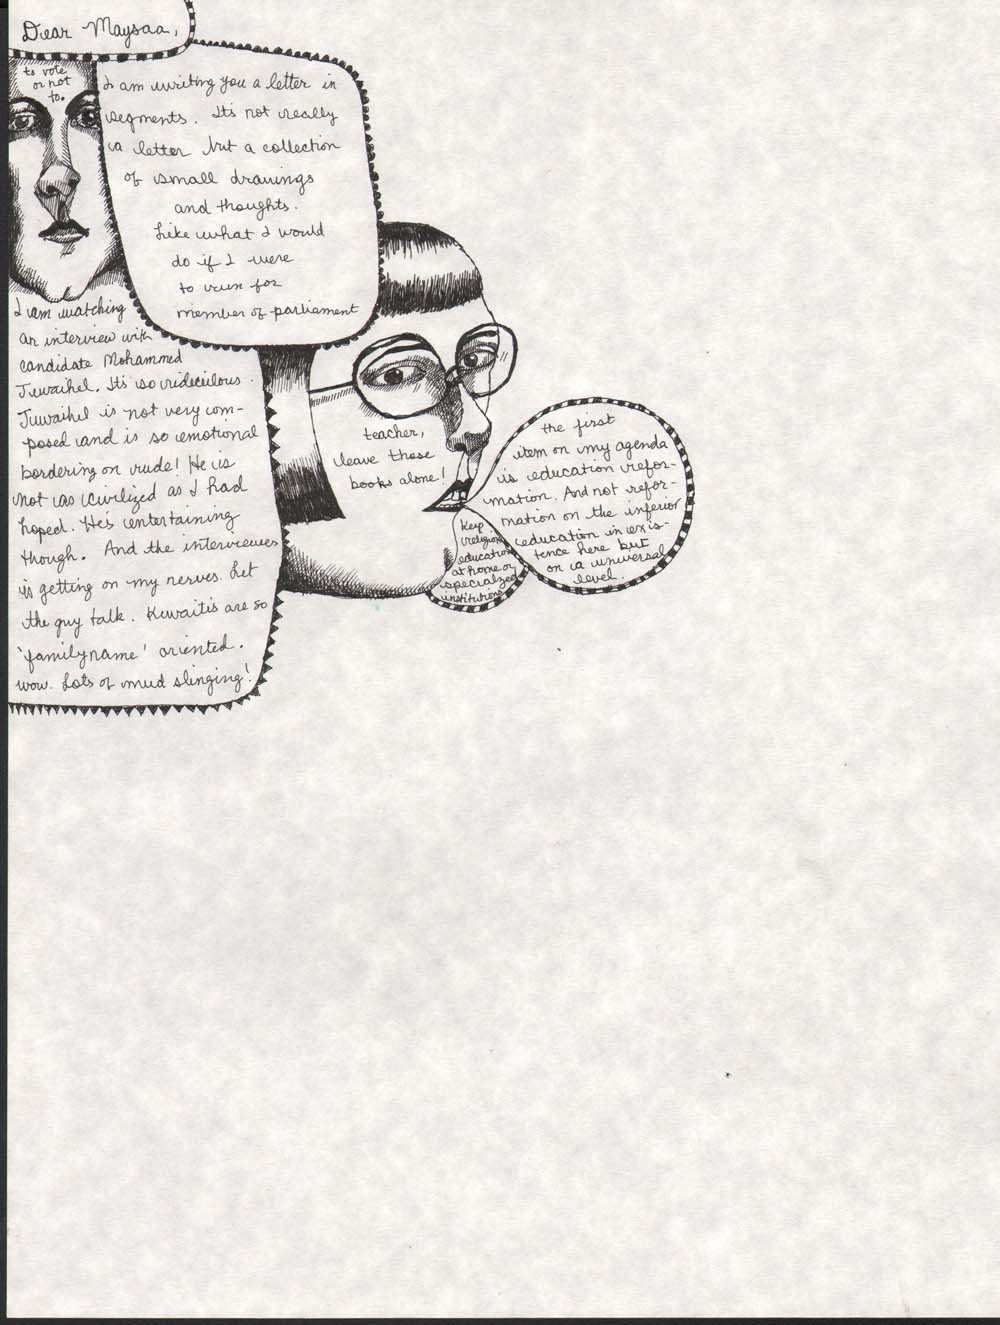 Dear Maysaa,
to vote
or not
to.
I am writing you a letter in
segments. It's not really
a letter but a collection
of small drawings
and thoughts.
Like what I would
do if I were
to run for
member of parliament
I am watching
an interview with
candidate Mohammed
Juwaihel. It's so rideculous.
Juwaihel is not very com-
posed and is so emotional
bordering on rude! He is
not as civilized as I had
hoped. He's entertaining
though. And the interviewer
is getting on my nerves. Let
the guy talk. Kuwaitis are so
'family name' oriented.
wow. Lots of mud slinging!
teacher,
leave those
books alone!
the first
item on my agenda
is education refor-
mation. And not refor-
mation on the inferior
education in exis-
tence here but
on a universal
level.
Keep
religion
education
at home or
specialized
institutions